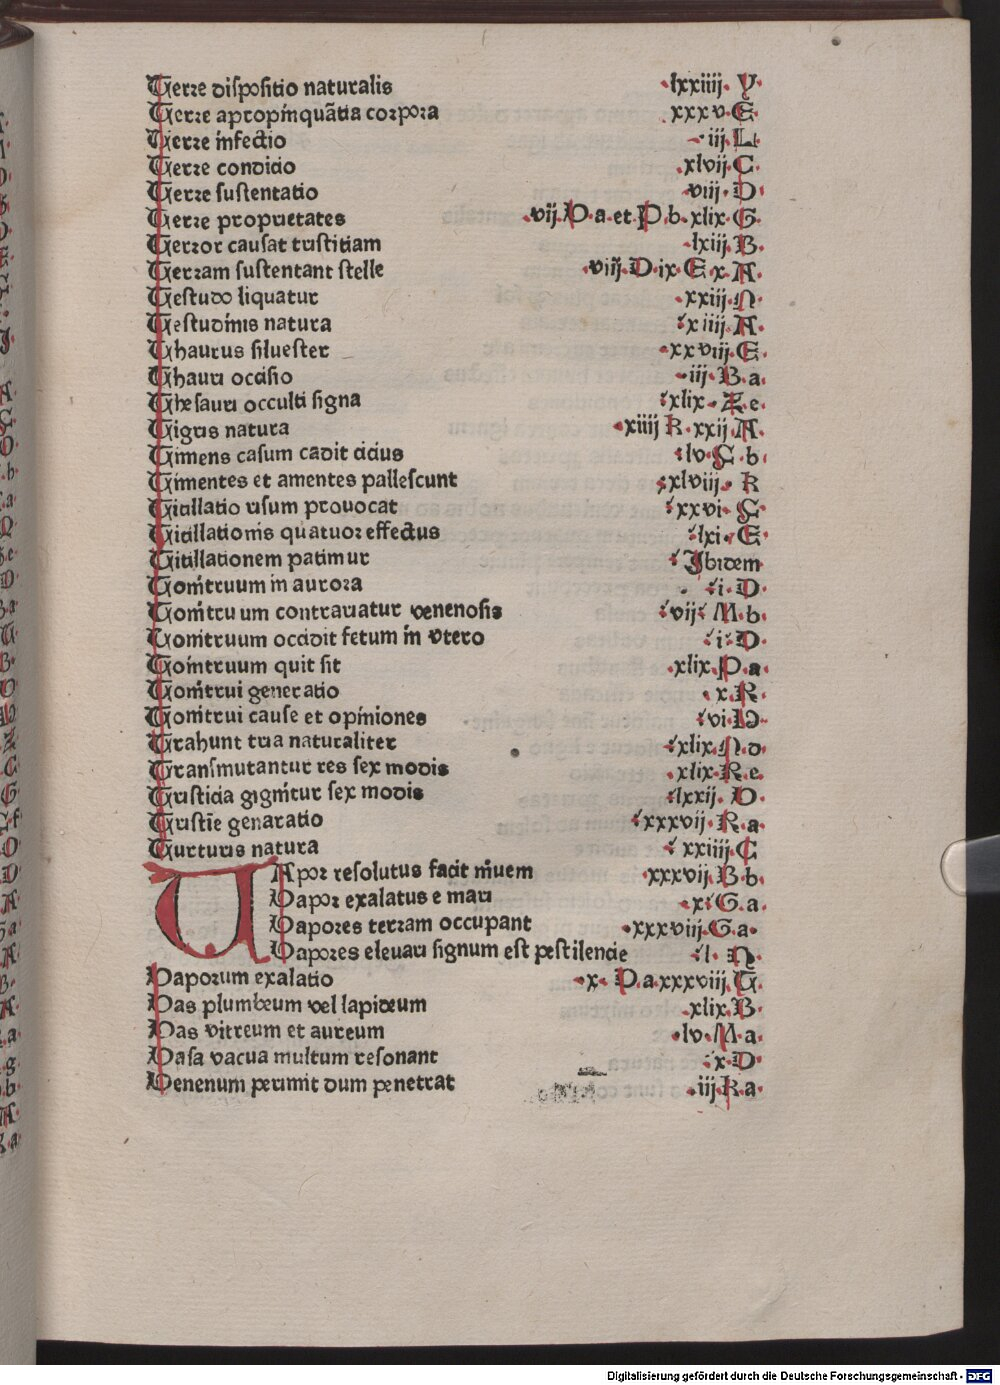 Terre dispositio naturalis ·lxxiiij· Y·
Terre apropinquãtia corpora ·xxxv·E·
Terre infectio ·iij·L·
Terre condicio ·xlvij·C·
Terre sustentatio ·viij·D·
Terre proprietates ·vij·P·a·et·P·b·xlix·G·
Terror causat tristitiam ·lxiij·B·
Terram sustentant stelle ·viij·D·ix·E·x·A·
Testudo liquatur ·xxiij·N·
Testudinis natura ·xiiij·A·
Thaurus siluester ·xxviij·E·
Thauri occisio ·iij·B·a·
Thesauri occulti signa ·xlix·Z·e·
Tigris natura ·xiiij·R·xxij·A·
Timens casum cadit cicius ·lv·S·b·
Timentes et amentes pallescunt ·xlviij·R
Titillatio risum prouocat ·xxvi·S·
Titillationis quatuor effectus ·lxi·E·
Titillationem patimur ·Ibidem
Tonitruum in aurora ·i·D·
Tonitruum contrariatur venenosis ·vij·M·b·
Tonitruum occidit fetum in vtero ·i·D·
Tonitruum quit sit ·xlix·P·a
Tonitrui generatio ·x·R·
Tonitrui cause et opiniones ·vi·
Trahunt tria naturaliter ·xlix·N·d·
Transmutantur res sex modis ·xlix·R·e·
Tristicia gignitur sex modis ·lxxij·
Tristie genaratio ·xxxvij·R·a·
Turturis natura ·xxiiij·C
VApor resolutus facit niuem ·xxxvij·B·b·
Vapor exalatus e mari ·xi·G·a·
Vapores terram occupant ·xxxviij·G·a·
Vapores eleuari signum est pestilencie ·l·N·
Vaporum exalatio ·x·P·a·xxxviij·G·
Vas plumbeum vel lapideum ·xlix·B·
Vas vitreum et aureum ·lv·M·a·
Vasa vacua multum resonant ·x·D·
Venenum perimit dum penetrat ·iij·R·a·
Digitalisierung gefördert durch die Deutsche Forschungsgemeinschaft - DFG